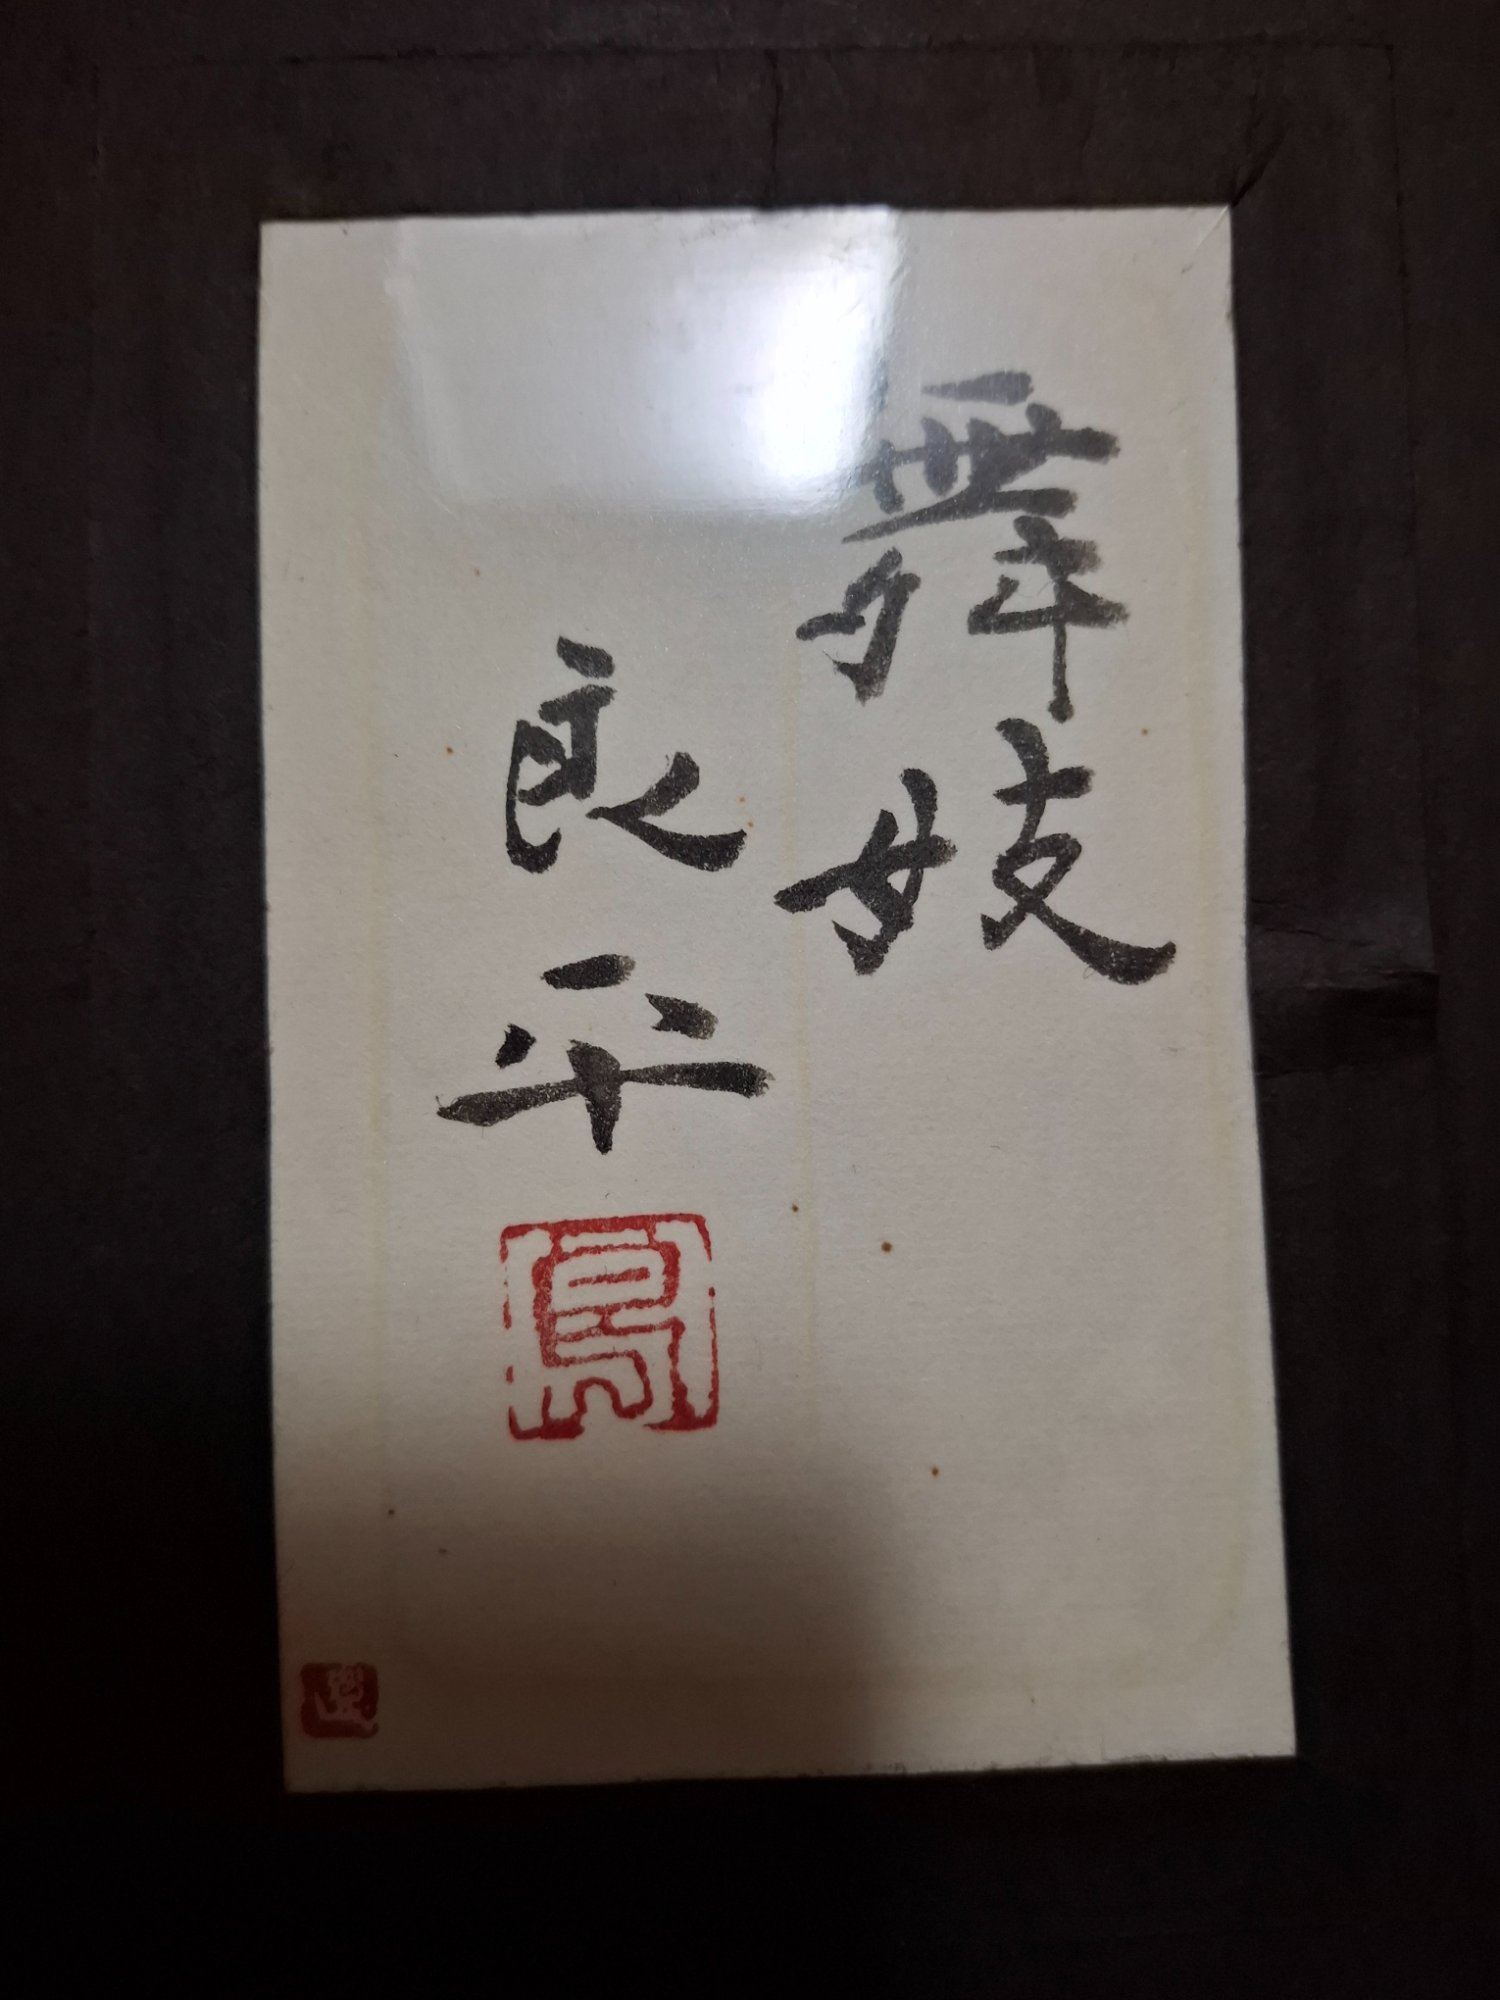 舞妓
良平